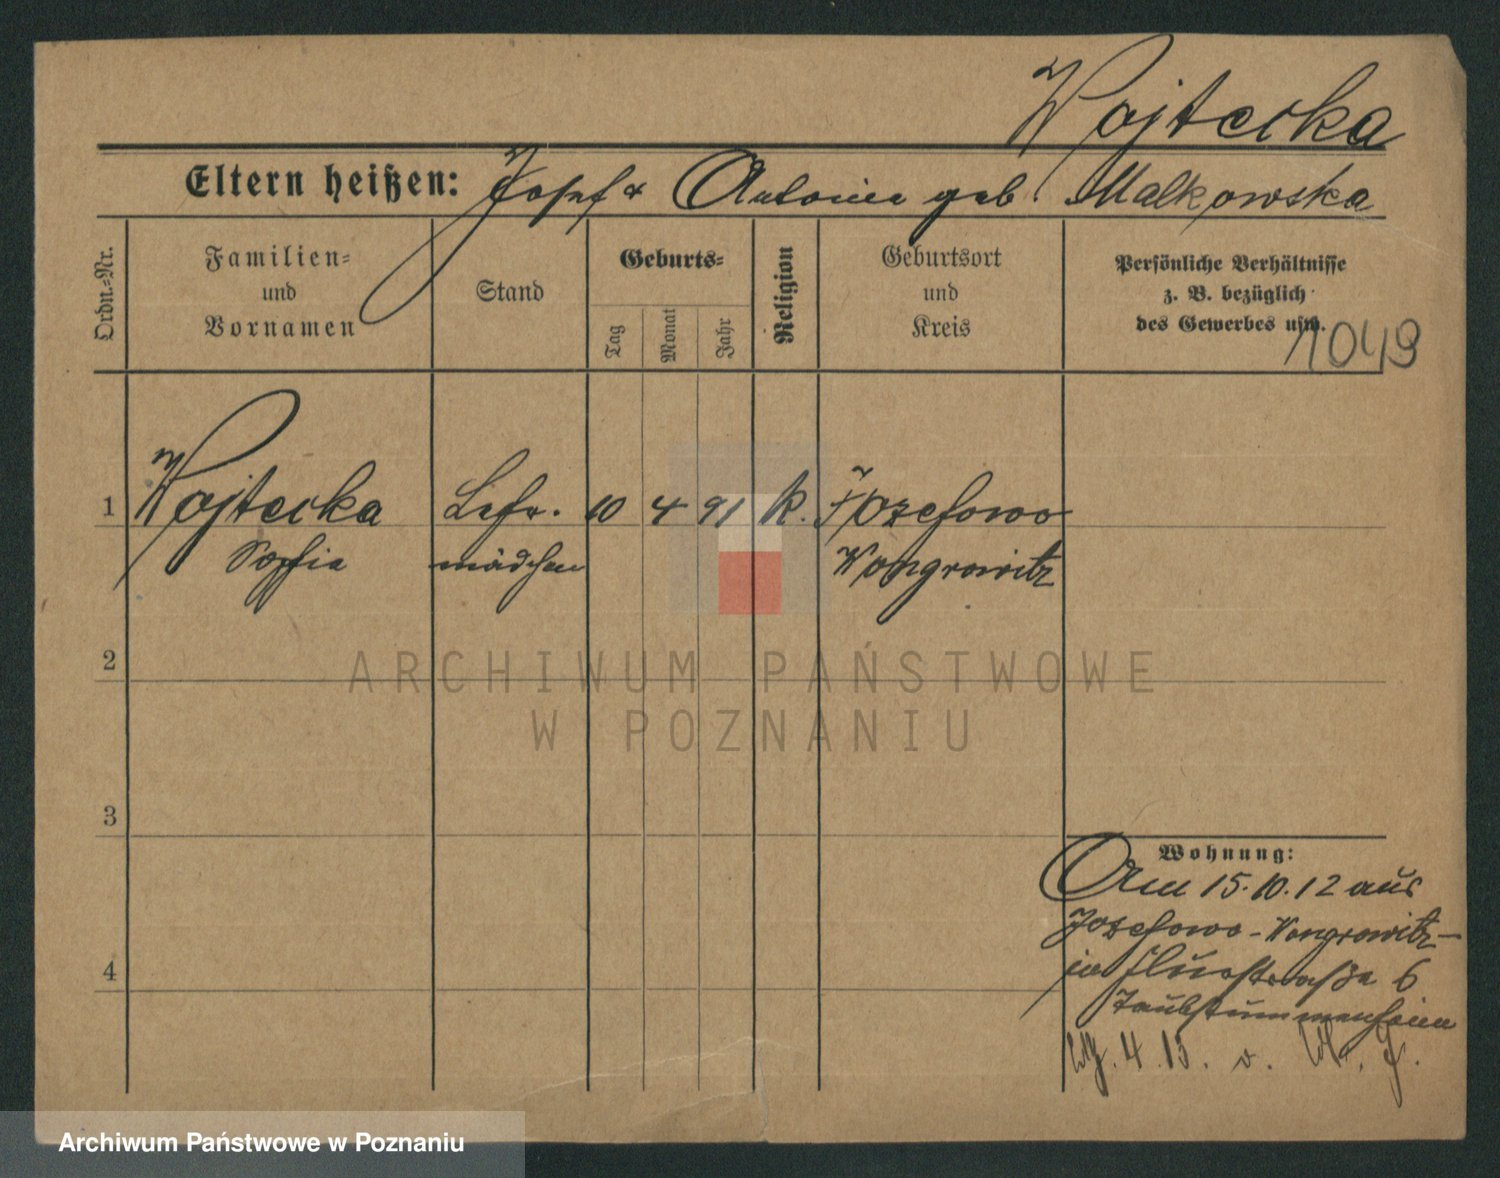 Wojtecka
Eltern heißen: Josef & Antonie geb Malkowska
Ordn.-Nr.
Familien- und Vornamen
Stand
Geburts-
Tag
Monat
Jahr
Religion
Geburtsort und Kreis
Persönliche Verhältnisse
z. B. bezüglich
des Gewerbes usw.
1049
1 Wojtecka Lehr. 10 4 91 k. Jozefowo
Sofie mädchen Wongrowitz
2
ARCHIWUM PAŃSTWOWE
W POZNANIU
3
Wohnung:
Am 15.10.12 aus
Jozefowo - Wongrowitz -
in 6
Taubstummenheim
4
4.13. v.
Archiwum Państwowe w Poznaniu